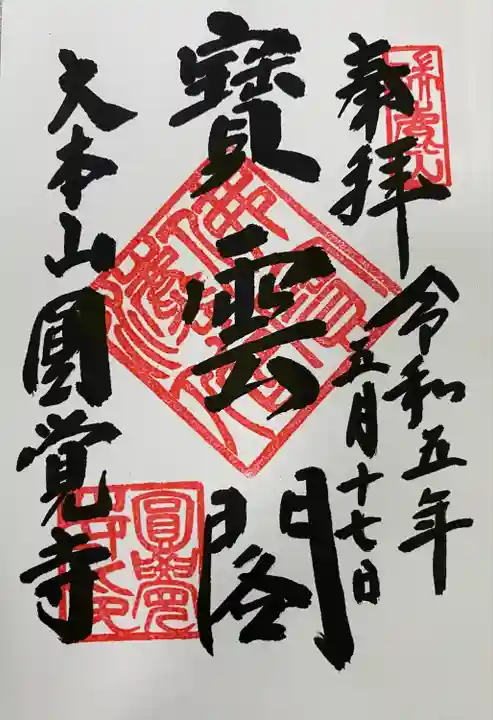 奉拝
令和五年
五月十七日
寶雲閣
大本山圓覚寺